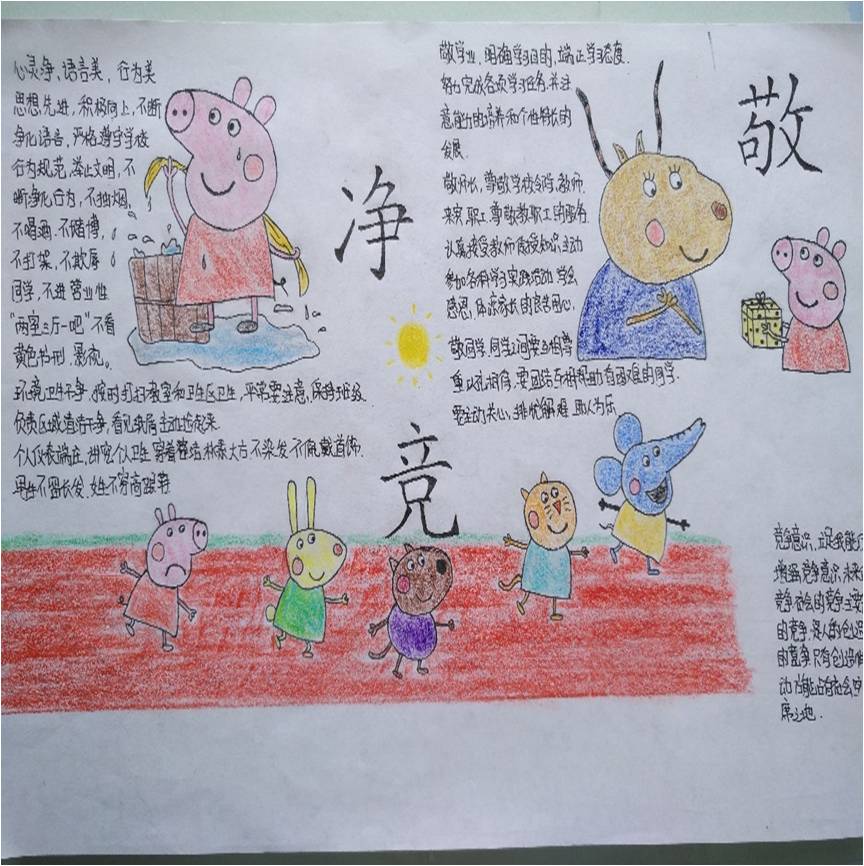 心灵净、语言美，行为美
思想先进，积极向上，不断
净化语言，严格遵守学校
行为规范，举止文明，不
断净化行为，不抽烟、
不喝酒、不赌博，
不打架，不欺辱
同学，不进营业性
“两室一厅一吧”不看
黄色书刊、影视。
环境卫生干净，按时打扫教室和卫生区卫生，平常要注意，保持班级
负责区域清洁干净，看见纸屑主动捡起来
个人仪表端庄，讲究个人卫生 穿着整洁，朴素大方 不染发 不佩戴首饰
男生不留长发、女生不穿高跟鞋
净
敬学业，明确学习目的，端正学习态度.
努力完成各项学习任务.并注
意能力的培养和个性特长的
发展.
敬师长，尊敬学校领导、教师.
来宾 职工，尊敬教职工的服务.
认真接受教师传授知识，主动
参加各种学习实践活动 学会
感恩，体谅家长的良苦用心，
敬同学，同学之间要互相尊
重 以礼相待，要团结互相帮助有困难的同学.
要主动关心，排忧解难 助人为乐
敬
竞
竞争意识，
增强竞争意识，未来
竞争 社会的竞争主要
的竞争，
的竞争，只有创造
动 才能占有社会的
席之地.